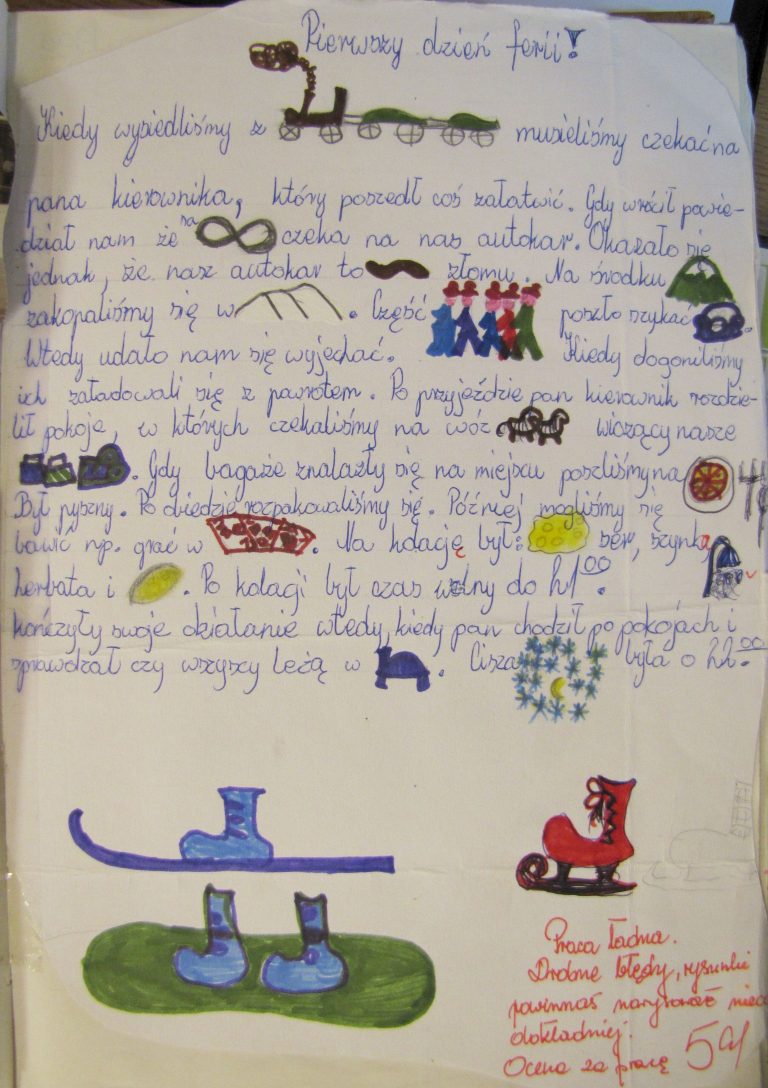 Pierwszy dzień ferii!
Kiedy wysiedliśmy z musieliśmy czekać na
pana kierownika, który poszedł coś załatwić. Gdy wrócił powie-
dział nam że na czeka na nas autokar. Okazało się
jednak, że nasz autokar to złomu. Na środku
zakopaliśmy się w . Część poszło szykać .
Wtedy udało nam się wyjechać. Kiedy dogoniliśmy
ich załadowali się z pawrotem. Po przyjeździe pan kierownik rozdzie-
lił pokoje, w których czekaliśmy na wóz wiozący nasze
. Gdy bagaże znalazły się na miejscu poszliśmy na
Był pyszny. Po obiedzie rozpakowaliśmy się. Później mogliśmy się
bawić np. grać w . Na kolację był: ser, szynka,
herbata i . Po kolagi był czas wolny do 21 00.
kończyły swoje działanie wtedy, kiedy pan chodził po pokojach i
sprawdzał czy wszyscy leżą w . Cisza była o 22.00
Praca ładna.
Drobne błędy, rysunki
powinnaś narysować nieco
dokładniej.
Ocena za pracę 5